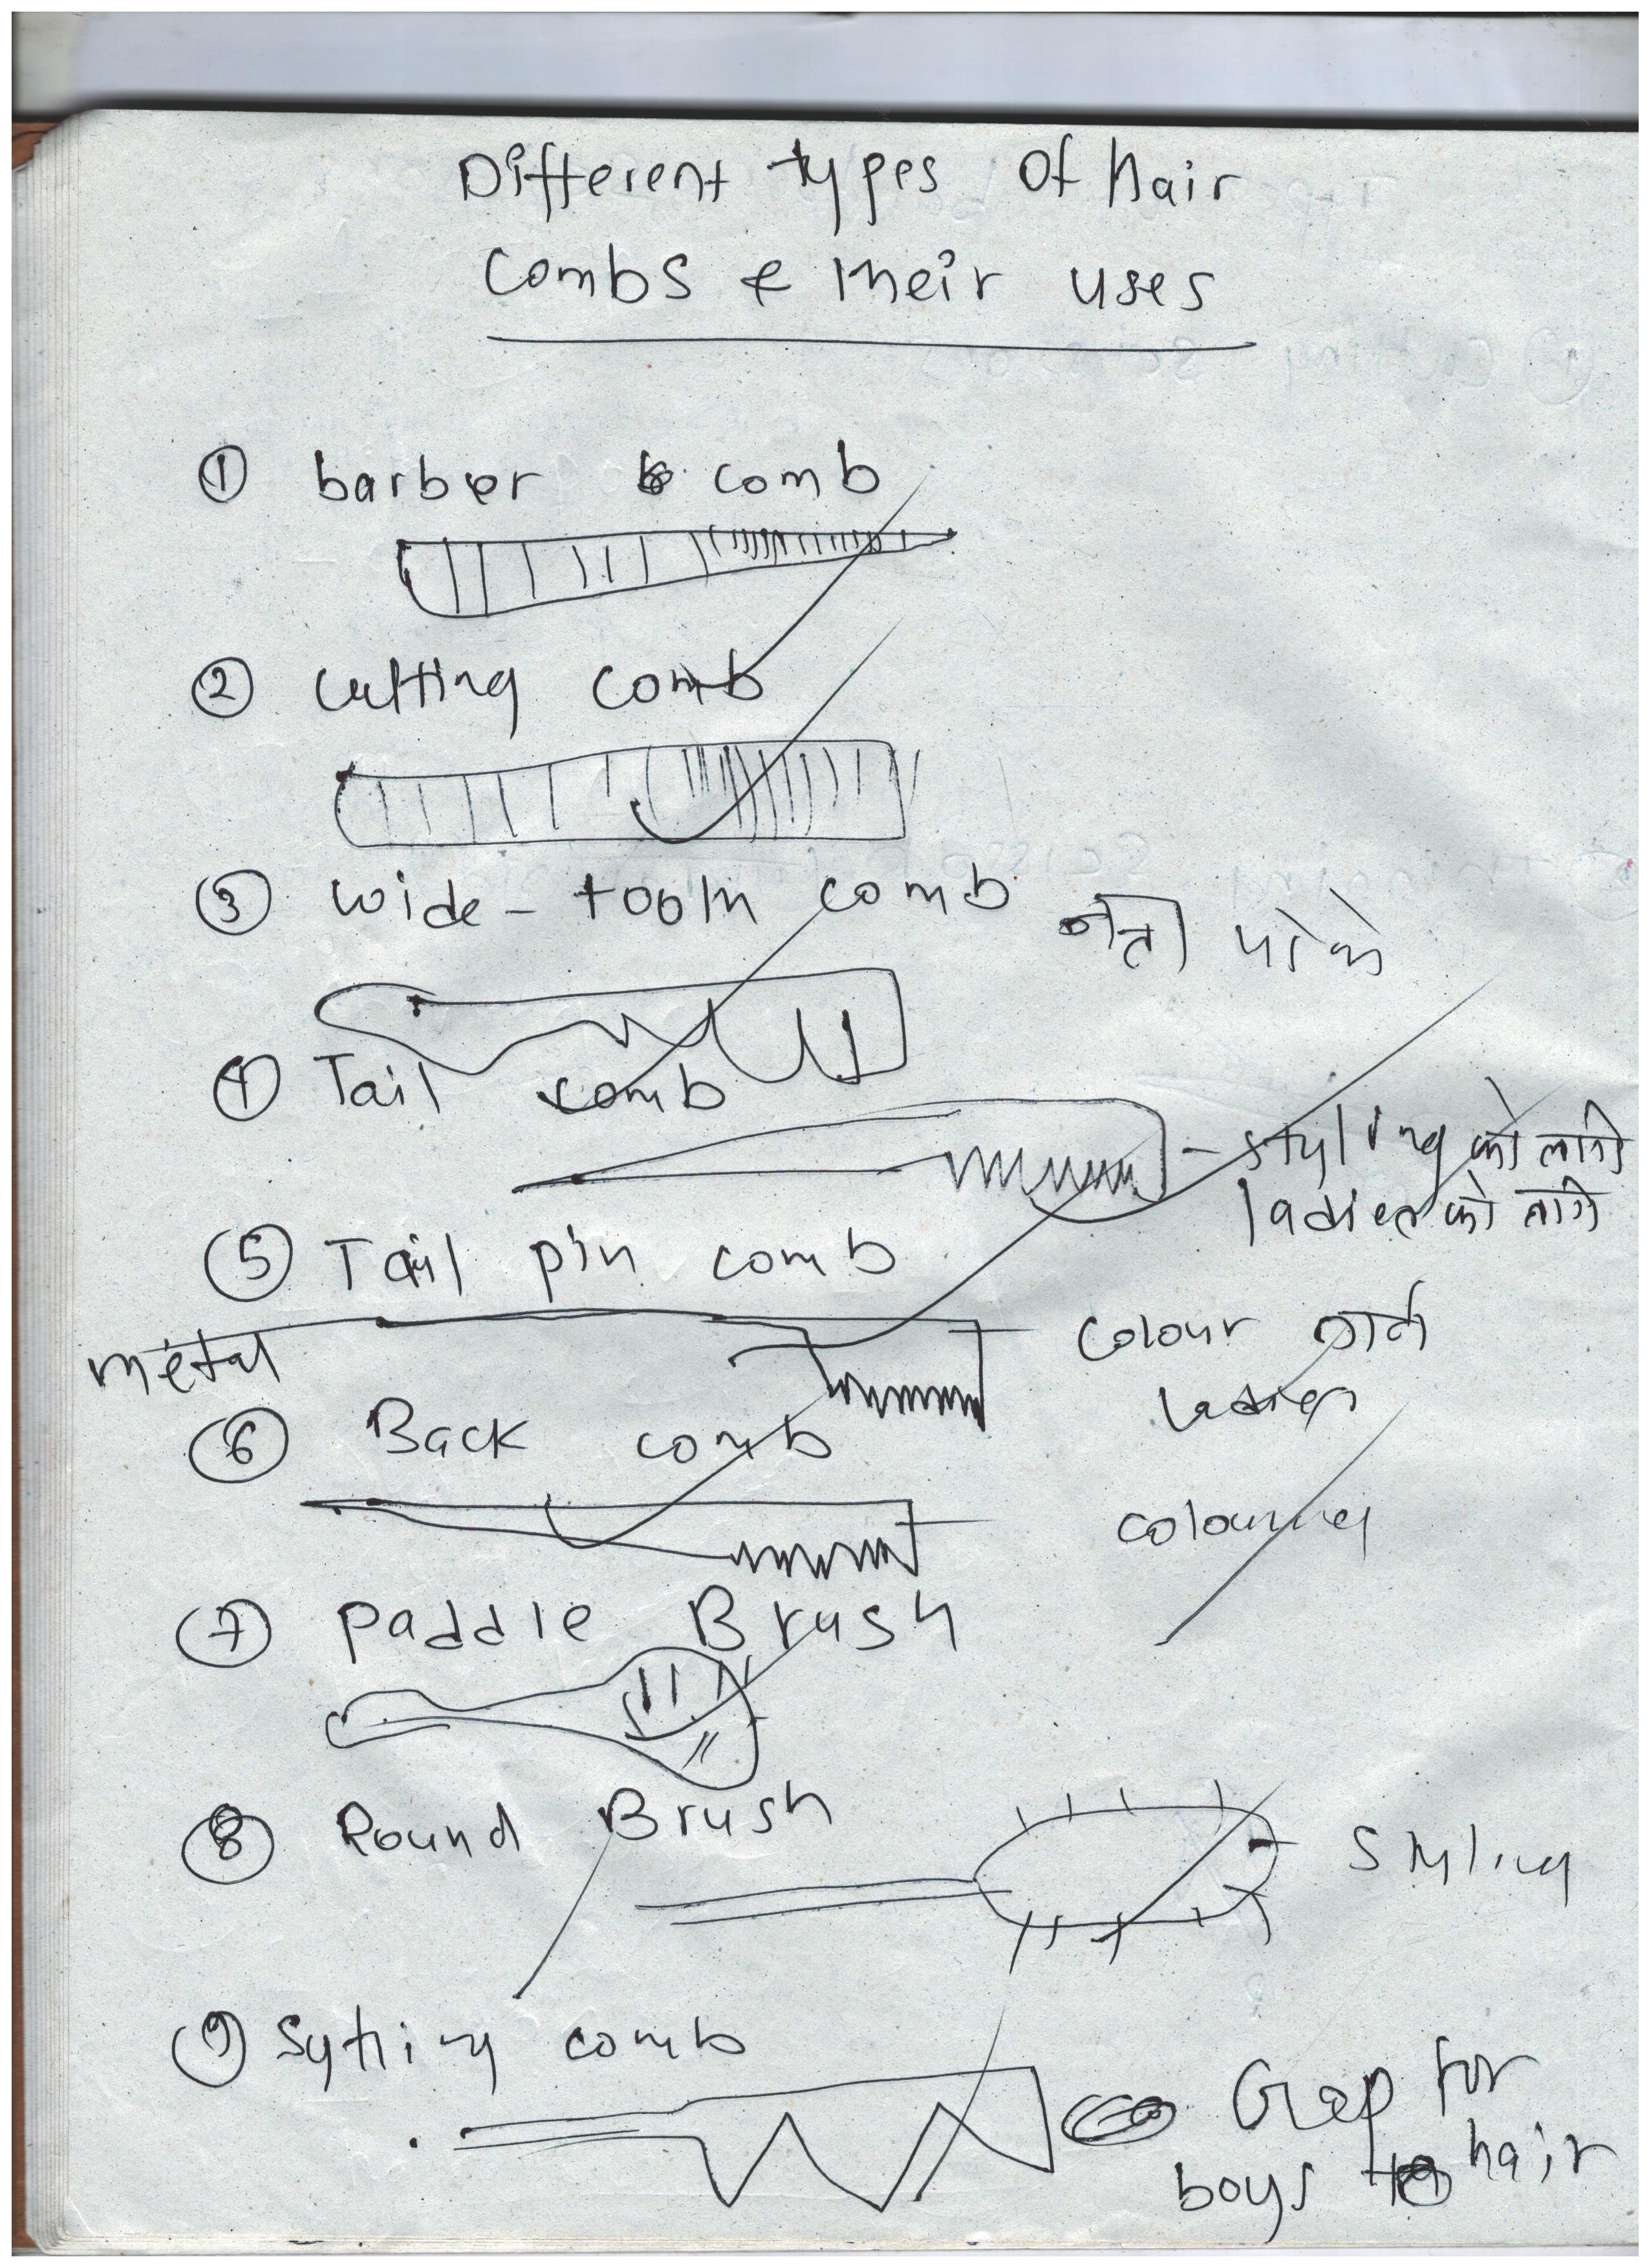 Different types of hair
combs & their uses
① barber comb
② cutting comb
③ wide-tooth comb
④ Tail comb
- styling को लागी
ladies को लागी
⑤ Tail pin comb
metal
colour
ladies
⑥ Back comb
colouring
⑦ paddle Brush
⑧ Round Brush
Styling
⑨ Sytling comb
Gap for
boys hair